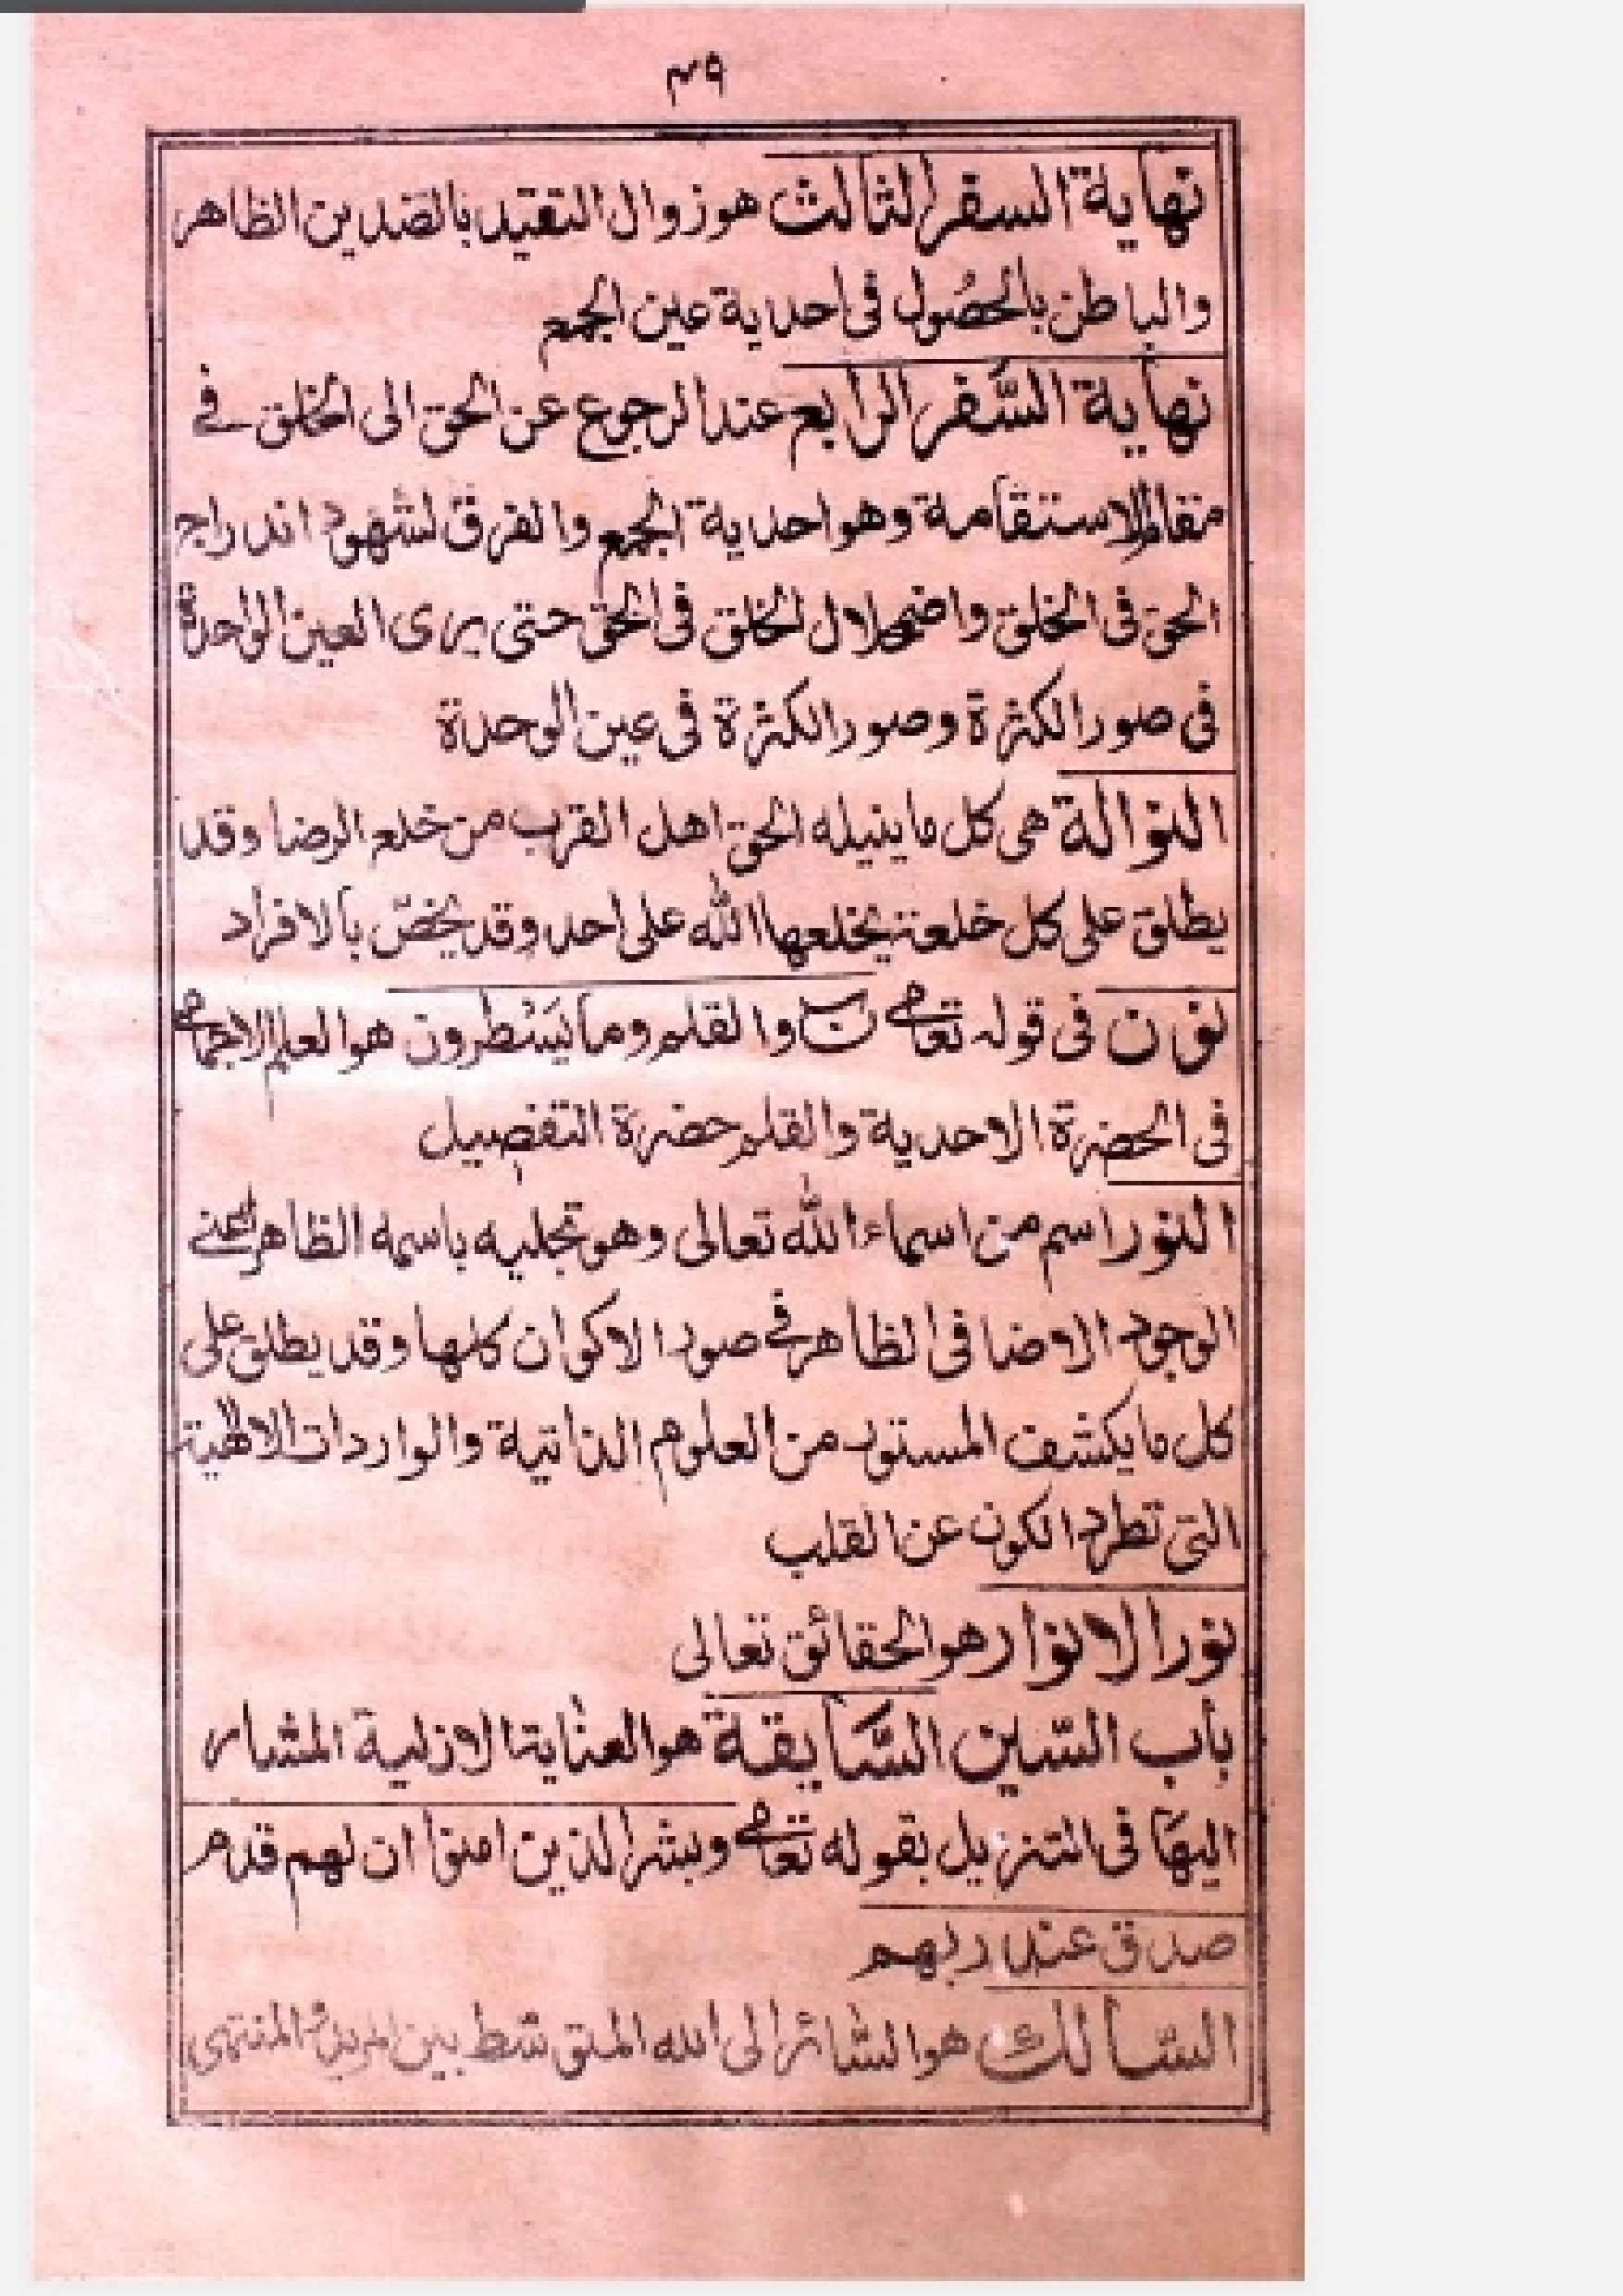 ٤٩
نهاية السفر الثالث هو زوال التقيد بالضدين الظاهر
والباطن بالحصُول فى احداية عين الجمع
نهاية السَّفر الرابع عند الرجوع عن الحق الى الخلق في
مقام الاستقامة وهو احدية الجمع والفرق لشهود اندراج
الحق فى الخلق واضمحلال الخلق فى الحق حتى يرى العين الواحدة
فى صور الكثرة وصور الكثرة فى عين الوحدة
النوالة هى كل ما ينيله الحق اهل القرب من خلع الرضا وقد
يطلق على كل خلعة يخلعها الله على احد وقد يخصّ بالافراد
نون فى قوله تعالى ن والقلم وما يَسْطرون هو العلم الاجمالي
فى الحضرة الاحدية والقلم حضرة التفصيل
النور اسم من اسماء الله تعالى وهو تجليه باسمه الظاهر يعنى
الوجود الاضافى الظاهر في صور الاكوان كلها وقد يطلق على
كل ما يكشف المستور من العلوم الذاتية والواردات الالهية
التى تطرد الكون عن القلب
نور الانوار هو الحقائق تعالى
باب السّين السَّايقة هو العناية الازلية المشار
اليهَا فى التنزيل بقوله تعالى وبشر الذين امنوا ان لهم قدم
صدق عند ربهم
السّالك هو السّائر الى الله المتوسّط بين المريد والمنتهى